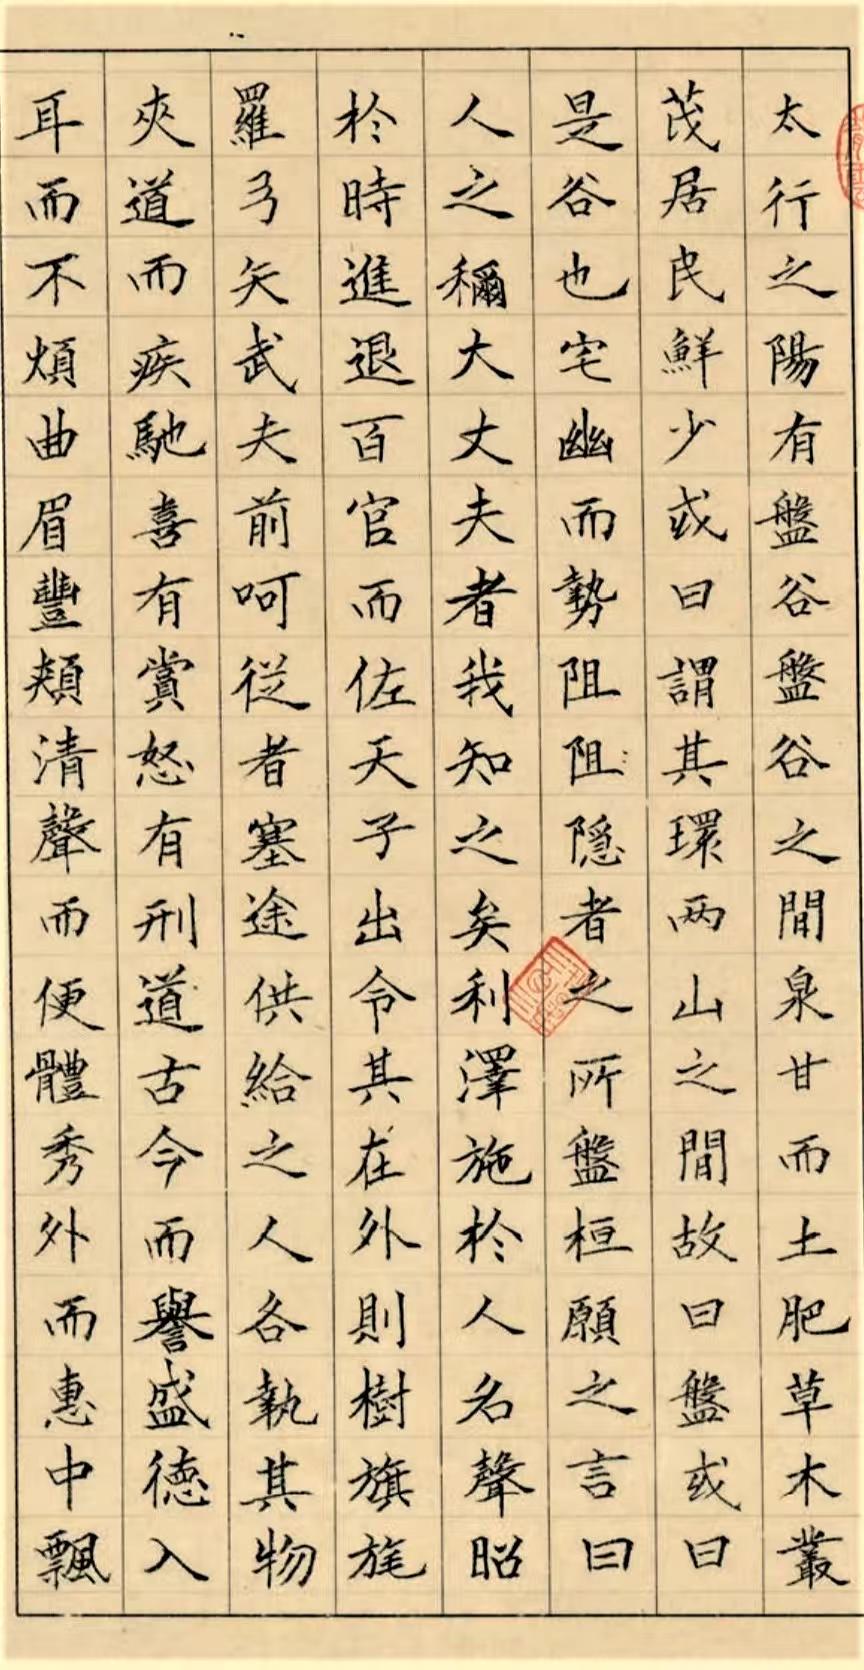 太行之陽有盤谷盤谷之間泉甘而土肥草木叢
茂居民鮮少或曰謂其環兩山之間故曰盤或曰
是谷也宅幽而勢阻阻隱者之所盤桓願之言曰
人之稱大丈夫者我知之矣利澤施於人名聲昭
於時進退百官而佐天子出令其在外則樹旗旄
羅弓矢武夫前呵從者塞途供給之人各執其物
夾道而疾馳喜有賞怒有刑道古今而譽盛德入
耳而不煩曲眉豐頰清聲而便體秀外而惠中飄